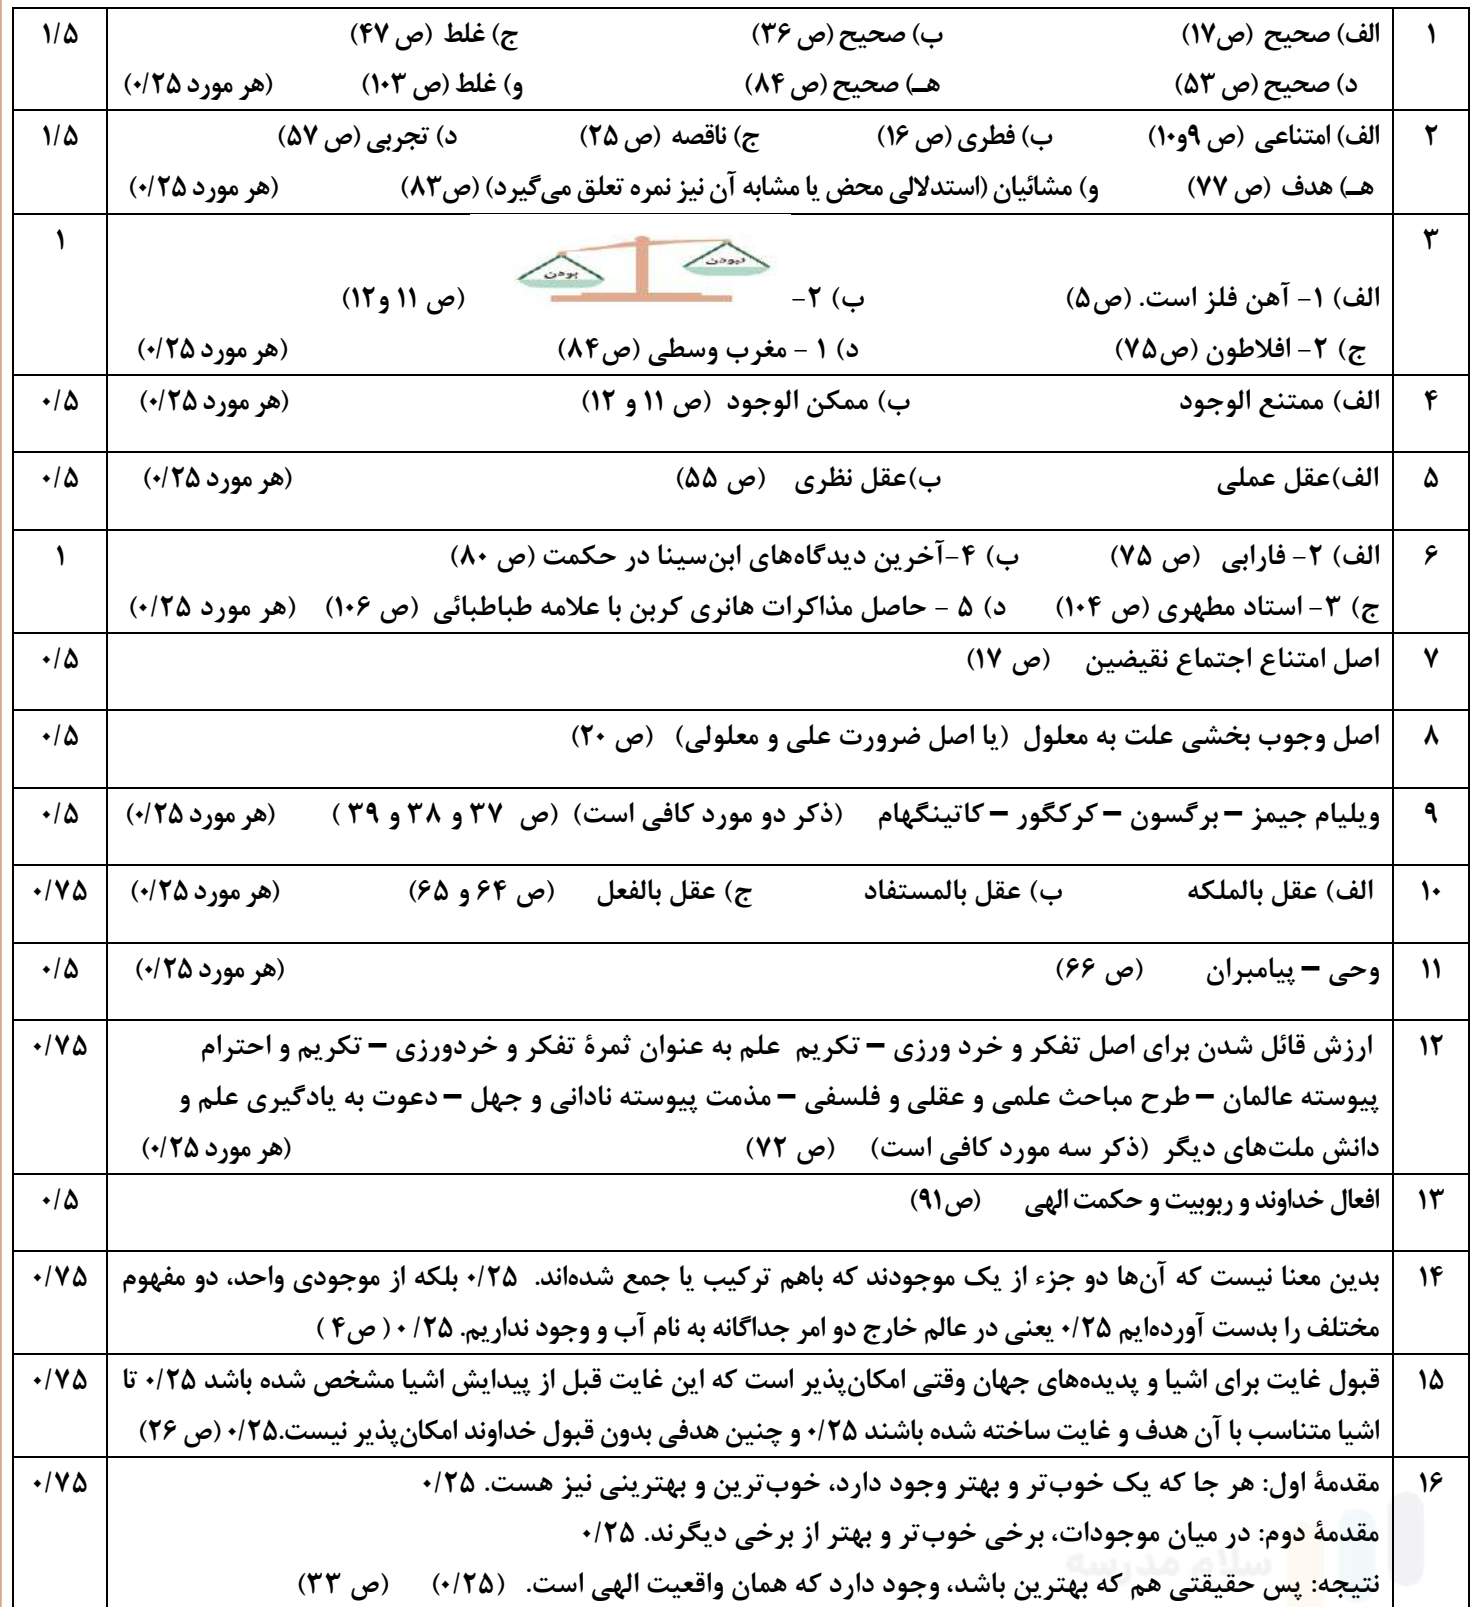 ۱ الف) صحیح (ص۱۷) ب) صحیح (ص ۳۶) ج) غلط (ص ۴۷) ۱/۵
د) صحیح (ص ۵۳) هـ) صحیح (ص ۸۴) و) غلط (ص ۱۰۳) (هر مورد ۰/۲۵)
۲ الف) امتناعی (ص ۹و۱۰) ب) فطری (ص ۱۶) ج) ناقصه (ص ۲۵) د) تجربی (ص ۵۷) ۱/۵
هـ) هدف (ص ۷۷) و) مشائیان (استدلالی محض یا مشابه آن نیز نمره تعلق می‌گیرد) (ص۸۳) (هر مورد ۰/۲۵)
۳ ۱
نبودن
بودن
الف) ۱- آهن فلز است. (ص۵) ب) ۲- (ص ۱۱ و۱۲)
ج) ۲- افلاطون (ص۷۵) د) ۱ - مغرب وسطی (ص۸۴) (هر مورد ۰/۲۵)
۴ الف) ممتنع الوجود ب) ممکن الوجود (ص ۱۱ و ۱۲) (هر مورد ۰/۲۵) ۰/۵
۵ الف)عقل عملی ب)عقل نظری (ص ۵۵) (هر مورد ۰/۲۵) ۰/۵
۶ الف) ۲- فارابی (ص ۷۵) ب) ۴-آخرین دیدگاه‌های ابن‌سینا در حکمت (ص ۸۰) ۱
ج) ۳- استاد مطهری (ص ۱۰۴) د) ۵ - حاصل مذاکرات هانری کربن با علامه طباطبائی (ص ۱۰۶) (هر مورد ۰/۲۵)
۷ اصل امتناع اجتماع نقیضین (ص ۱۷) ۰/۵
۸ اصل وجوب بخشی علت به معلول (یا اصل ضرورت علی و معلولی) (ص ۲۰) ۰/۵
۹ ویلیام جیمز – برگسون – کرکگور – کاتینگهام (ذکر دو مورد کافی است) (ص ۳۷ و ۳۸ و ۳۹ ) (هر مورد ۰/۲۵) ۰/۵
۱۰ الف) عقل بالملکه ب) عقل بالمستفاد ج) عقل بالفعل (ص ۶۴ و ۶۵) (هر مورد ۰/۲۵) ۰/۷۵
۱۱ وحی – پیامبران (ص ۶۶) (هر مورد ۰/۲۵) ۰/۵
۱۲ ارزش قائل شدن برای اصل تفکر و خرد ورزی – تکریم علم به عنوان ثمرهٔ تفکر و خردورزی – تکریم و احترام ۰/۷۵
پیوسته عالمان – طرح مباحث علمی و عقلی و فلسفی – مذمت پیوسته نادانی و جهل – دعوت به یادگیری علم و
دانش ملت‌های دیگر (ذکر سه مورد کافی است) (ص ۷۲) (هر مورد ۰/۲۵)
۱۳ افعال خداوند و ربوبیت و حکمت الهی (ص۹۱) ۰/۵
۱۴ بدین معنا نیست که آن‌ها دو جزء از یک موجودند که باهم ترکیب یا جمع شده‌اند. ۰/۲۵ بلکه از موجودی واحد، دو مفهوم ۰/۷۵
مختلف را بدست آورده‌ایم ۰/۲۵ یعنی در عالم خارج دو امر جداگانه به نام آب و وجود نداریم. ۰/۲۵ ( ص۴ )
۱۵ قبول غایت برای اشیا و پدیده‌های جهان وقتی امکان‌پذیر است که این غایت قبل از پیدایش اشیا مشخص شده باشد ۰/۲۵ تا ۰/۷۵
اشیا متناسب با آن هدف و غایت ساخته شده باشند ۰/۲۵ و چنین هدفی بدون قبول خداوند امکان‌پذیر نیست.۰/۲۵ (ص ۲۶)
۱۶ مقدمهٔ اول: هر جا که یک خوب‌تر و بهتر وجود دارد، خوب‌ترین و بهترینی نیز هست. ۰/۲۵ ۰/۷۵
مقدمهٔ دوم: در میان موجودات، برخی خوب‌تر و بهتر از برخی دیگرند. ۰/۲۵
سلام مدرسه
نتیجه: پس حقیقتی هم که بهترین باشد، وجود دارد که همان واقعیت الهی است. (۰/۲۵) (ص ۳۳)